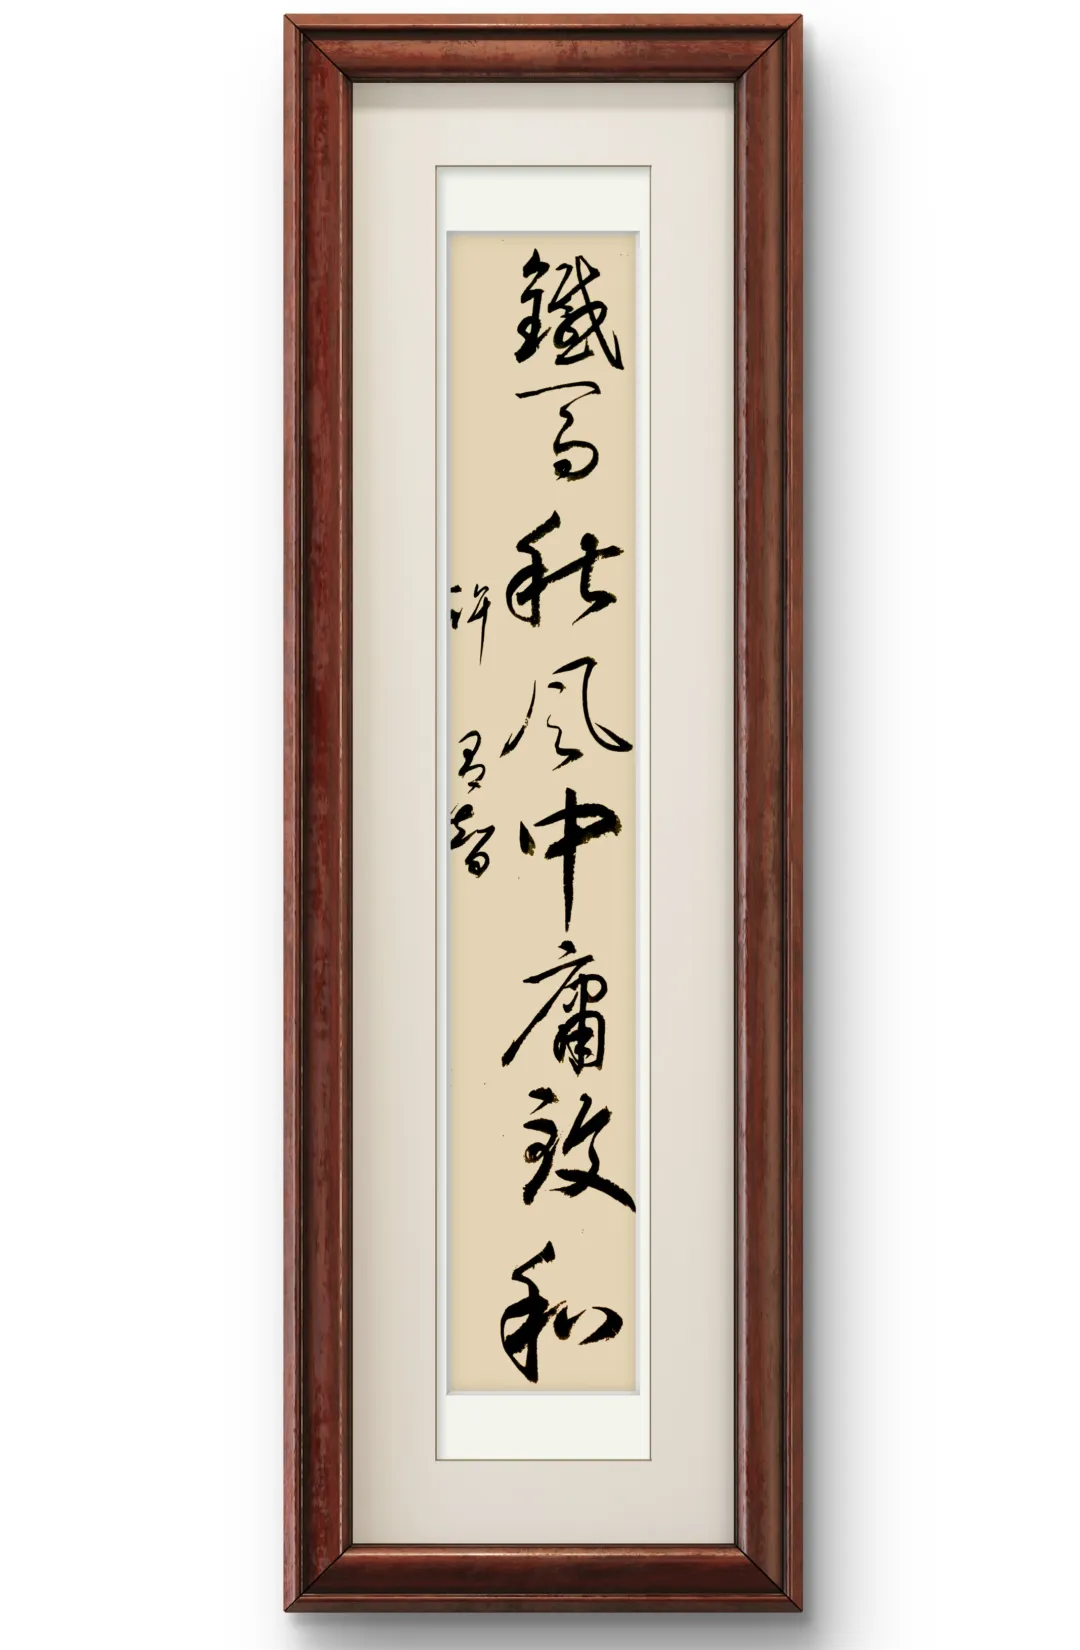 鐵馬秋風中庸致和
許
智